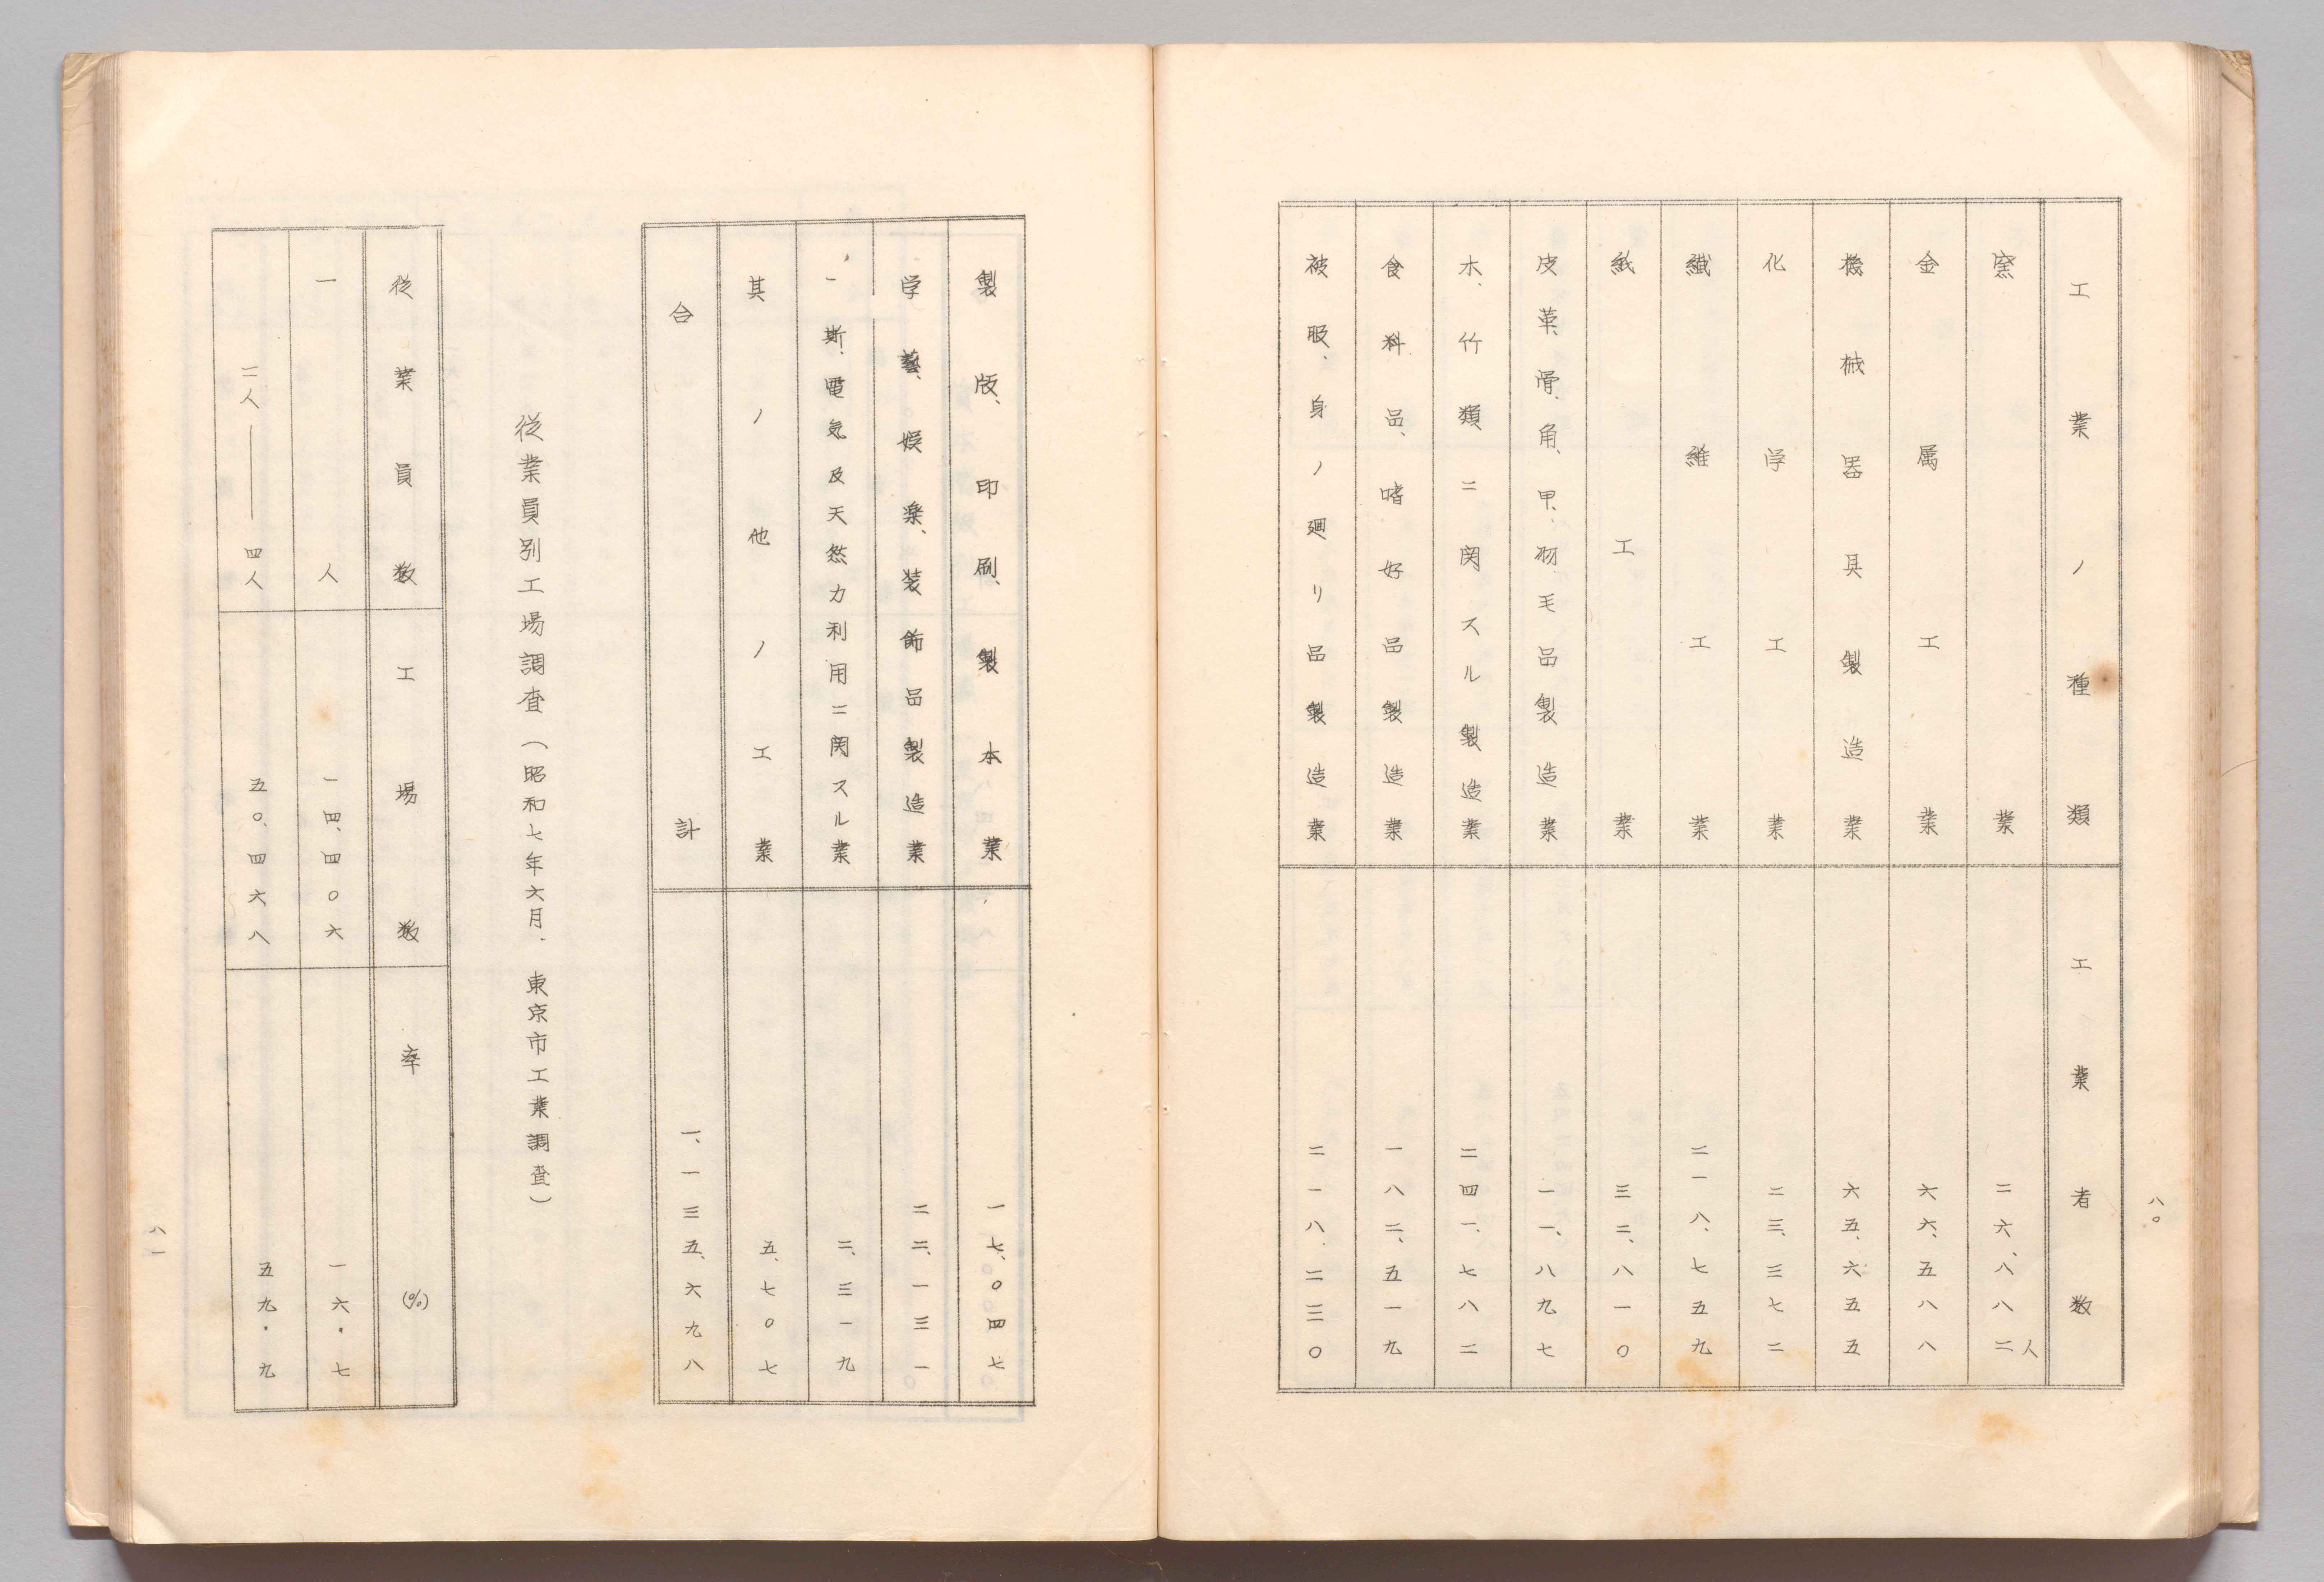 八〇
工業ノ種類 工業者数
窯業 二六、八八二人
金属工業 六六、五八八
機械器具製造業 六五、六五五
化学工業 二三、三七二
繊維工業 二一八、七五九
紙工業 三二、八一〇
皮革、骨、角、甲、羽毛品製造業 一一、八九七
木、竹類ニ関スル製造業 二四一、七八二
食料品、嗜好品製造業 一八二、五一九
被服、身ノ廻リ品製造業 二一八、二三〇
製版、印刷、製本業 一七、〇四七
学藝、娯楽、装飾品製造業 二二、一三一
斯、電気及天然力利用ニ関スル業 二、三一九
其ノ他ノ工業 五、七〇七
合計 一、一三五、六九八
従業員別工場調査(昭和七年六月.東京市工業調査)
従業員数 工場数 率(%)
一人 一四、四〇六 一六・七
二人――四人 五〇、四六八 五九・九
八一